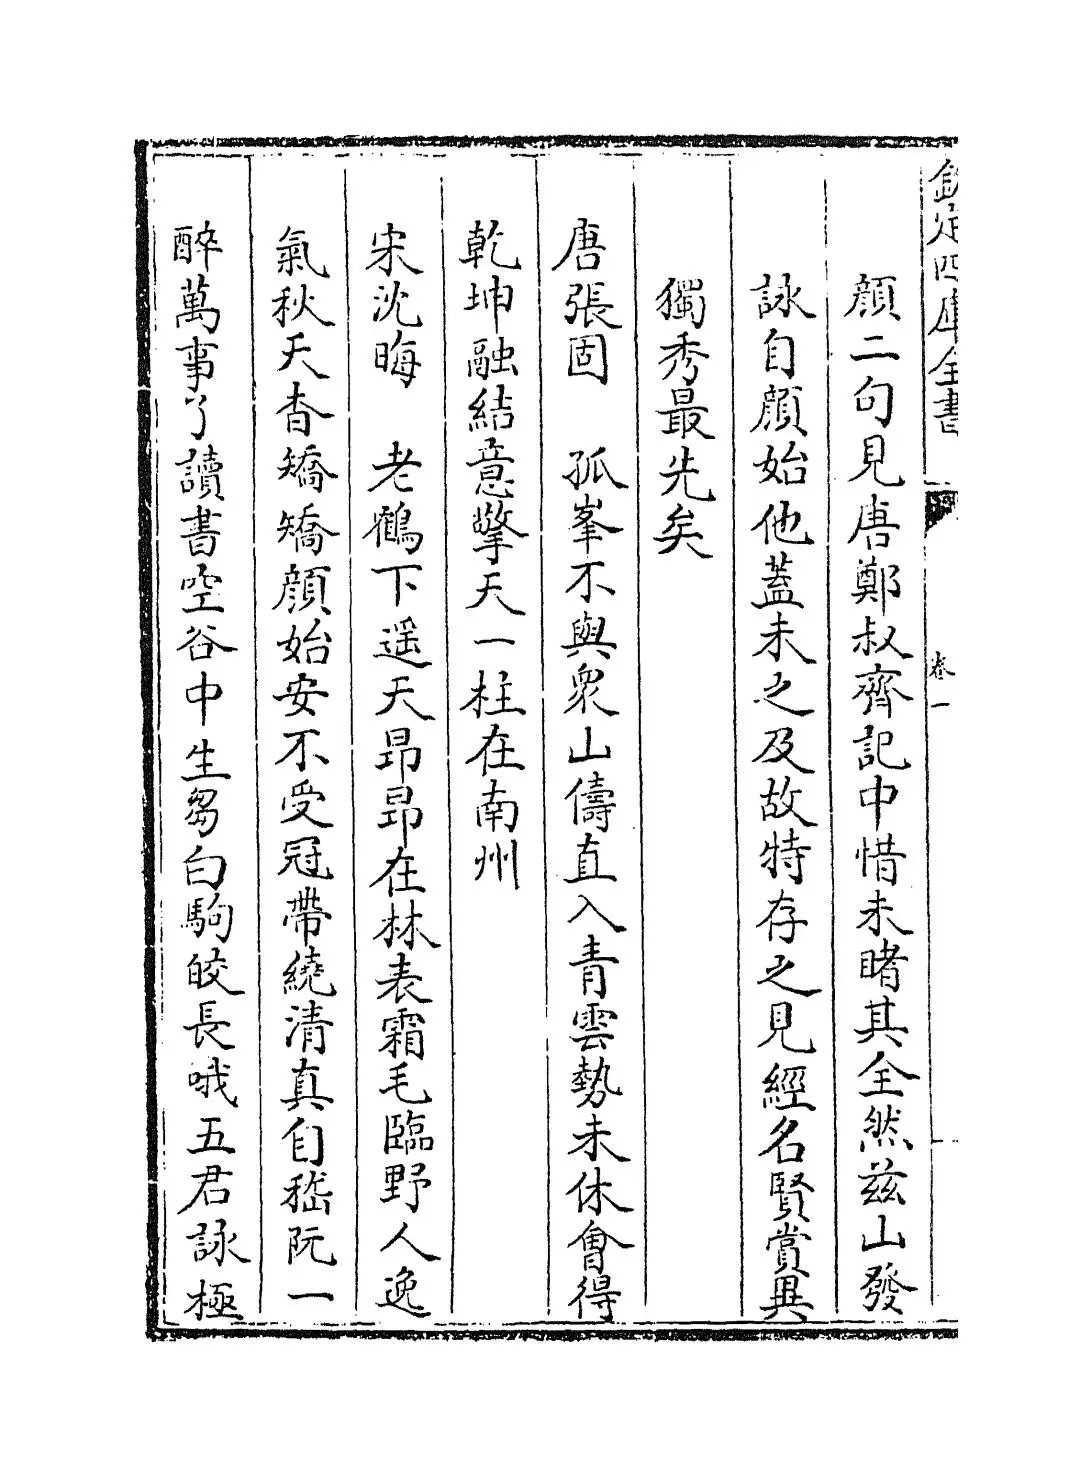 欽定四庫全書
卷一
顔二句見唐鄭叔齊記中惜未睹其全然兹山發
詠自顔始他蓋未之及故特存之見經名賢賞異
獨秀最先矣
唐張固　孤峯不與衆山儔直入青雲勢未休會得
乾坤融結意擎天一柱在南州
宋沈晦　老鶴下遥天昂昂在林表霜毛臨野人逸
氣秋天杳矯矯顔始安不受冠帶繞清真自嵇阮一
醉萬事了讀書空谷中生芻白駒皎長哦五君詠極